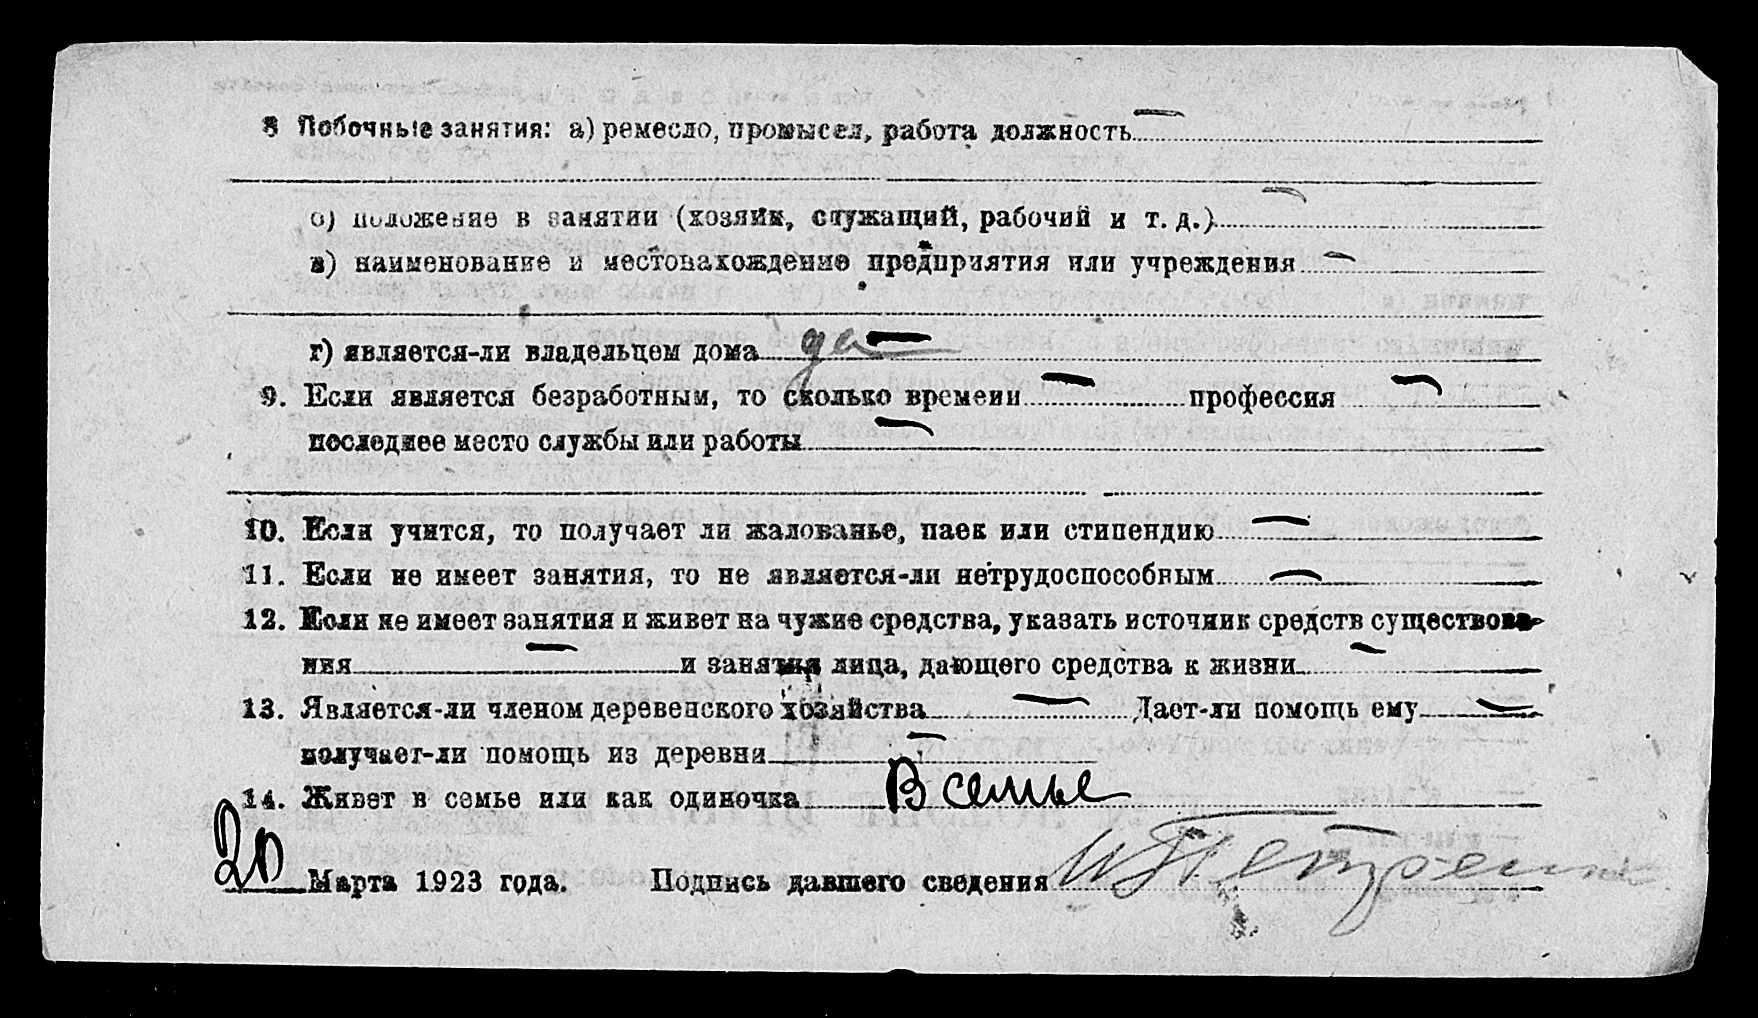 8 Побочные занятия: а) ремесло, промысел, работа должность —
б) положение в занятии (хозяин, служащий, рабочий и т. д.) —
в) наименование и местонахождение предприятия или учреждения —
г) является-ли владельцем дома да —
9. Если является безработным, то сколько времени — профессия —
последнее место службы или работы —
10. Если учится, то получает ли жалованье, паек или стипендию —
11. Если не имеет занятия, то не является-ли нетрудоспособным —
12. Если не имеет занятия и живет на чужие средства, указать источник средств существова-
ния — и занятия лица, дающего средства к жизни —
13. Является-ли членом деревенского хозяйства — Дает-ли помощь ему —
получает-ли помощь из деревни —
14. Живет в семье или как одиночка В семье
20 Марта 1923 года. Подпись давшего сведения